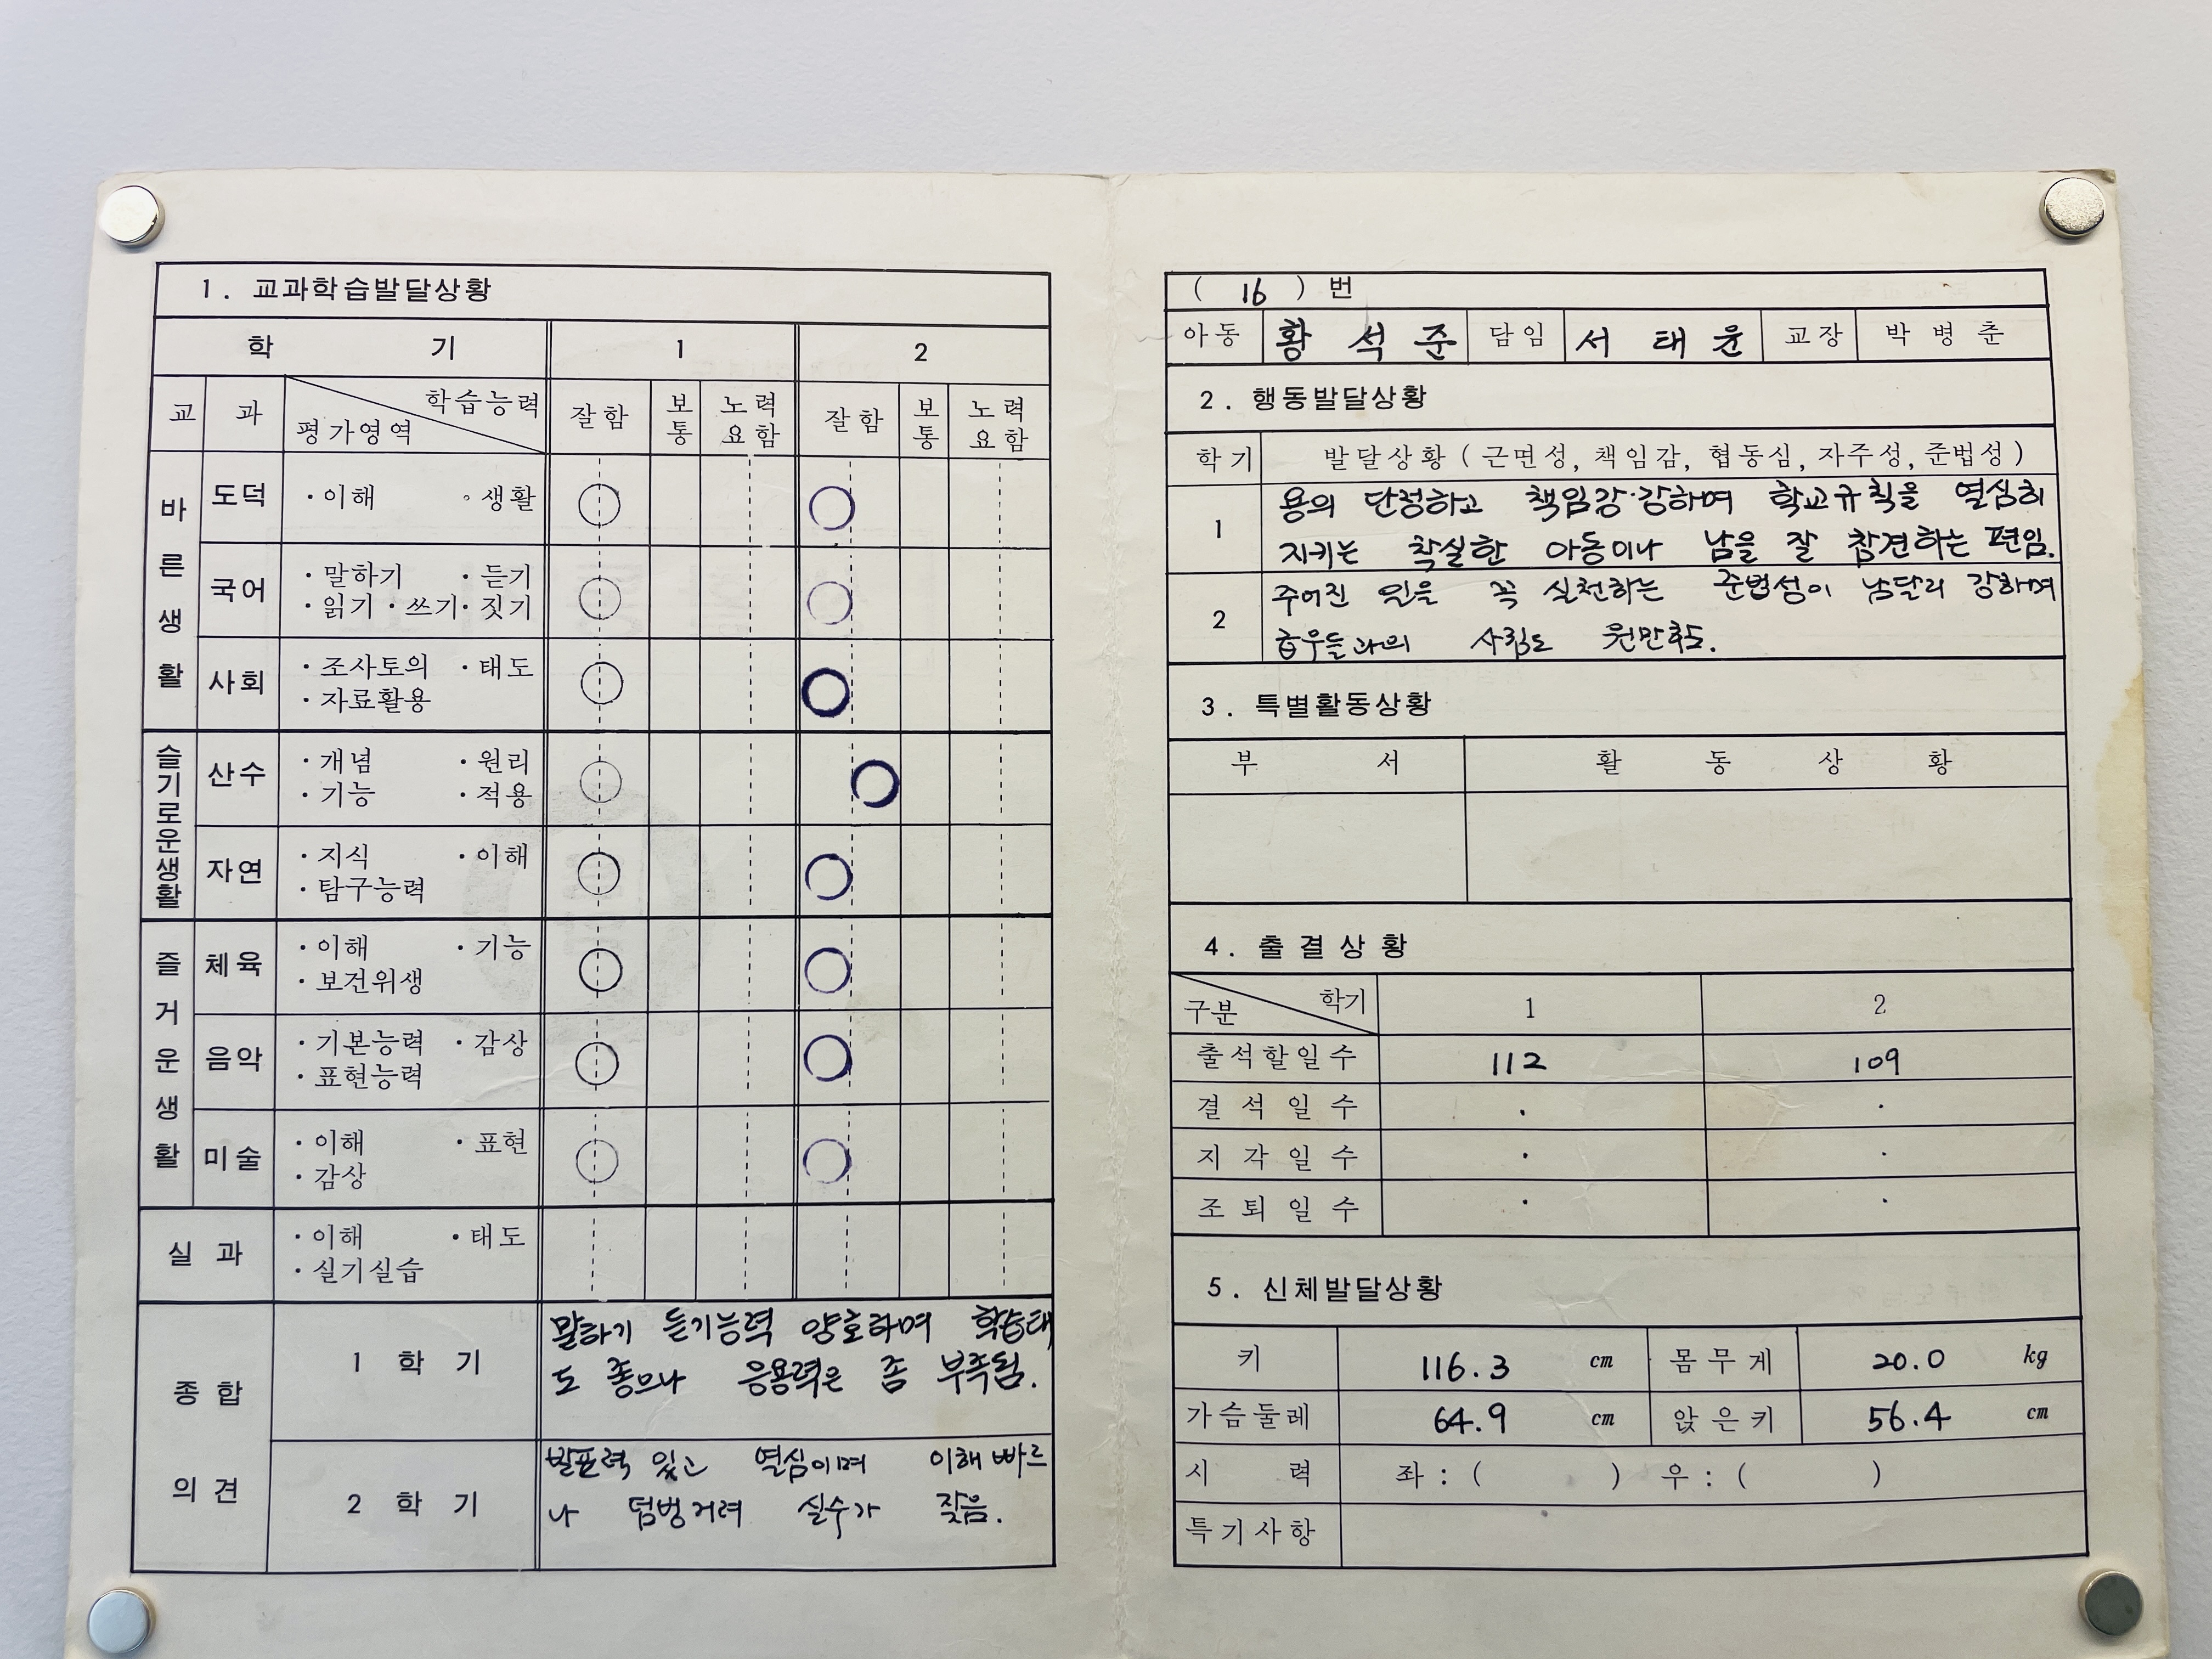 1. 교과학습발달상황
학 기 1 2
교 과 학습능력 평가영역 잘함 보통 노력요함 잘함 보통 노력요함
바른생활
도덕 ·이해 ·생활 ○ ○
국어 ·말하기 ·듣기
·읽기 ·쓰기 ·짓기 ○ ○
사회 ·조사토의 ·태도
·자료활용 ○ ○
슬기로운생활
산수 ·개념 ·원리
·기능 ·적용 ○ ○
자연 ·지식 ·이해
·탐구능력 ○ ○
즐거운생활
체육 ·이해 ·기능
·보건위생 ○ ○
음악 ·기본능력 ·감상
·표현능력 ○ ○
미술 ·이해 ·표현
·감상 ○ ○
실과 ·이해 ·태도
·실기실습
종합의견
1 학 기
말하기 듣기능력 양호하며 학습태
도 좋으나 응용력은 좀 부족됨.
2 학 기
발표력 있고 열심이며 이해 빠르
나 덤벙거려 실수가 잦음.
( 16 ) 번
아동 황석준 담임 서태윤 교장 박병춘
2. 행동발달상황
학기 발달상황 (근면성, 책임감, 협동심, 자주성, 준법성)
1
용의 단정하고 책임감 강하며 학교규칙을 열심히
지키는 착실한 아동이나 남을 잘 참견하는 편임.
2
주어진 일을 꼭 실천하는 준법성이 남달리 강하며
급우들과의 사귐도 원만함.
3. 특별활동상황
부 서 활 동 상 황
4. 출결상황
구분 학기 1 2
출석할일수 112 109
결석일수 · ·
지각일수 · ·
조퇴일수 · ·
5. 신체발달상황
키 116.3 cm 몸무게 20.0 kg
가슴둘레 64.9 cm 앉은키 56.4 cm
시 력 좌 : ( ) 우 : ( )
특기사항